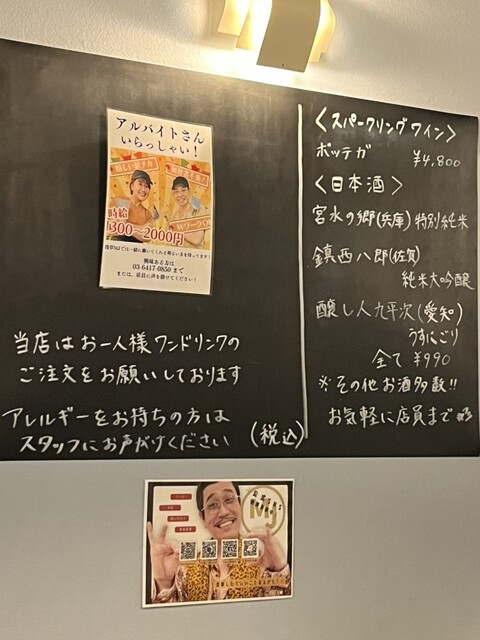 アルバイトさん
いらっしゃい!
時給
1300〜2000円
興味ある方は
03-6417-0850 まで
または、店員に声を掛けてください!
当店はお一人様ワンドリンクの
ご注文をお願いしております
アレルギーをお持ちの方は
スタッフにお声がけください
(税込)
<スパークリングワイン>
ボッテガ ¥4,800
<日本酒>
宮水の郷(兵庫)特別純米
鎮西八郎(佐賀)
純米大吟醸
醸し人九平次(愛知)
うすにごり
全て ¥990
※その他お酒多数!!
お気軽に店員まで
MJ